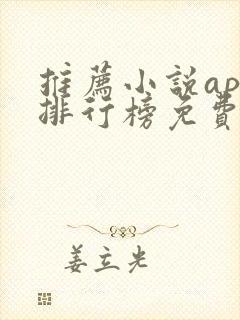 推薦小說ap
排行榜免費
姜立光